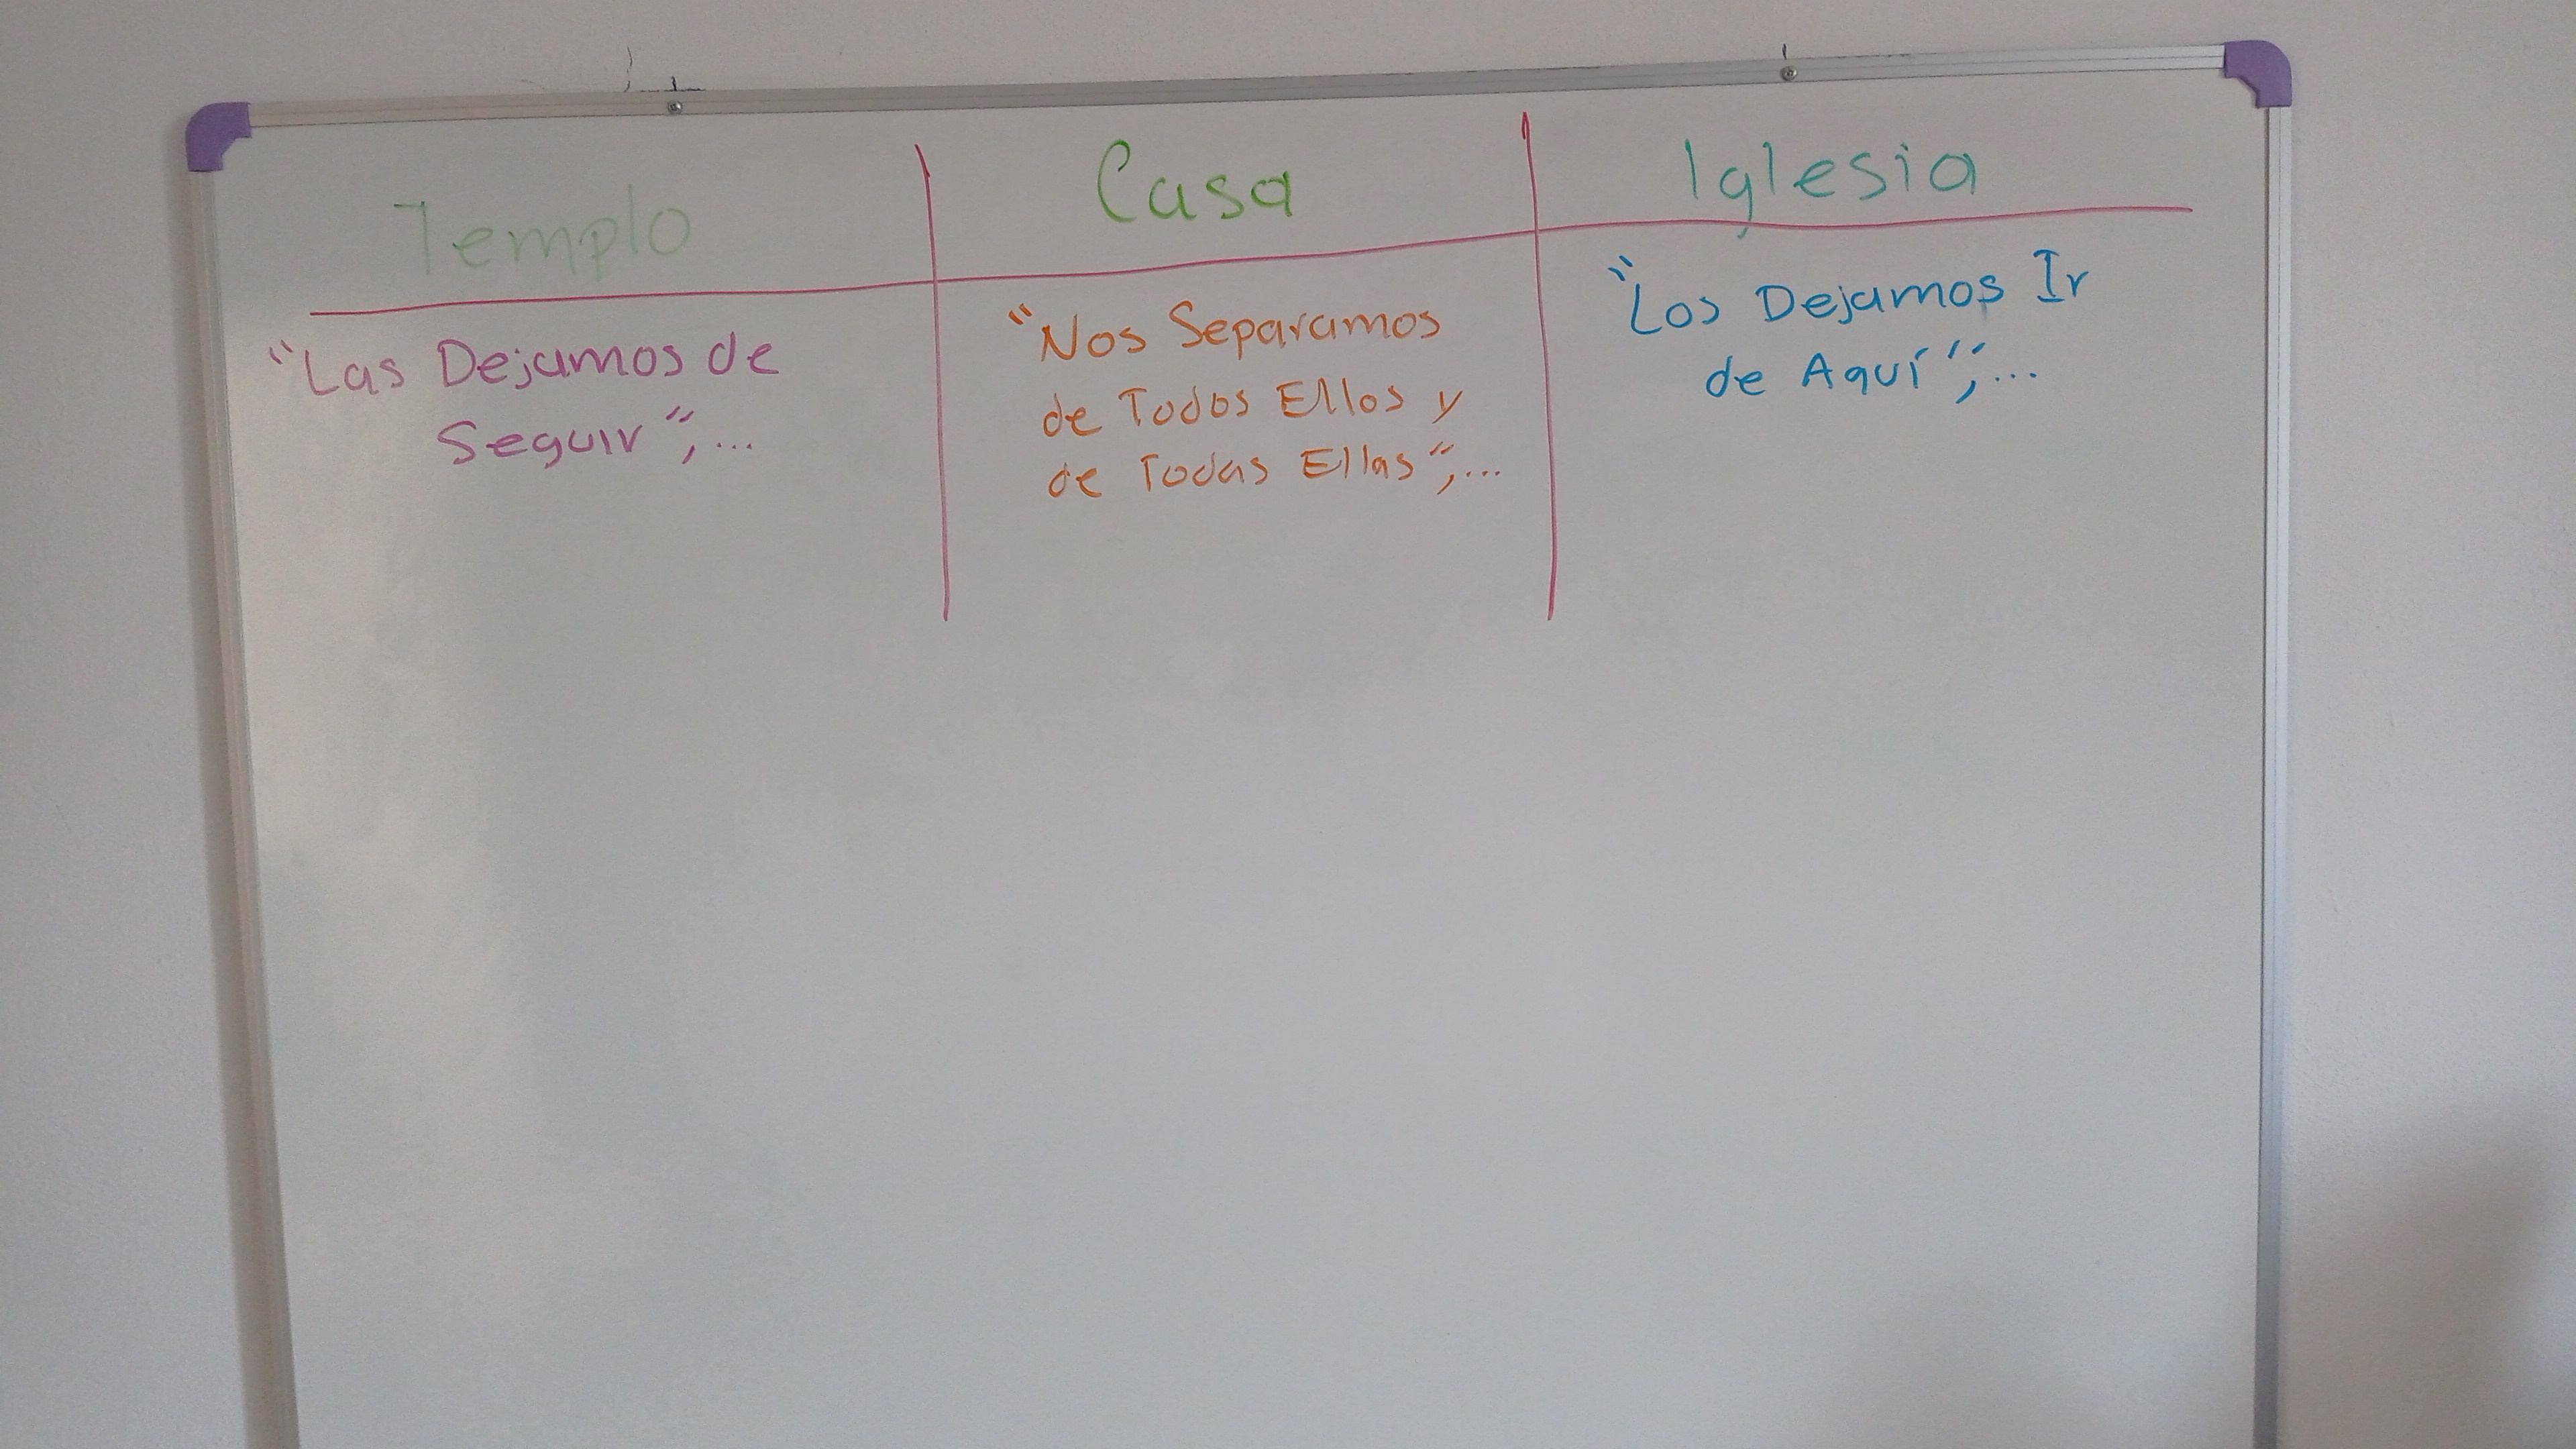 Templo
Casa
Iglesia
“Las Dejamos de
Seguir”,...
“Nos Separamos
de Todos Ellos y
de Todas Ellas”,...
“Los Dejamos Ir
de Aquí”,...